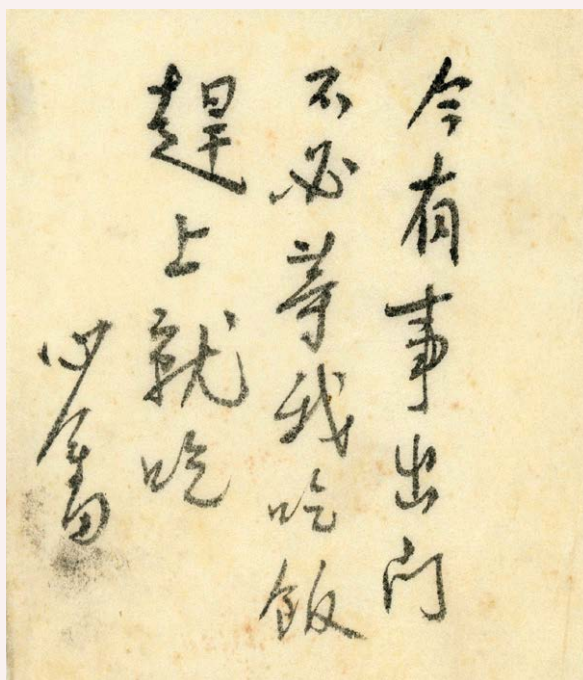 今有事出门
不必等我吃飯
趕上就吃
心畬